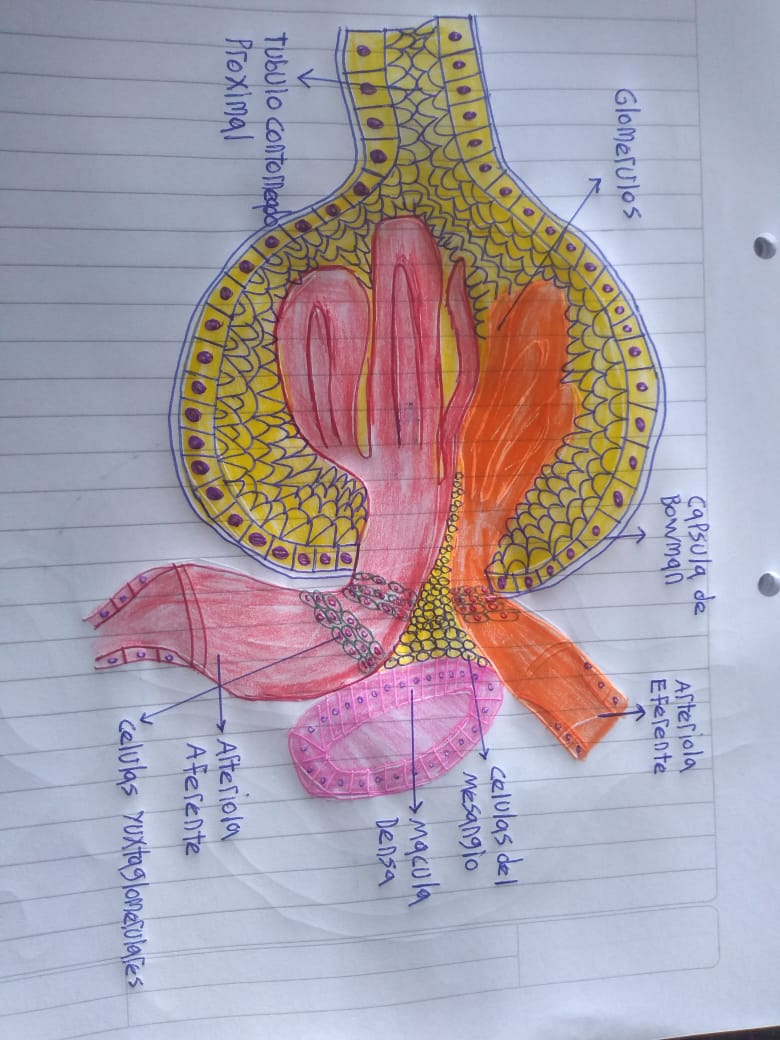 capsula de
Bowman
Arteriola
Eferente
Glomerulos
celulas del
mesangio
macula
Densa
Tubulo contorneado
Proximal
Arteriola
Aferente
celulas yuxtaglomerulares